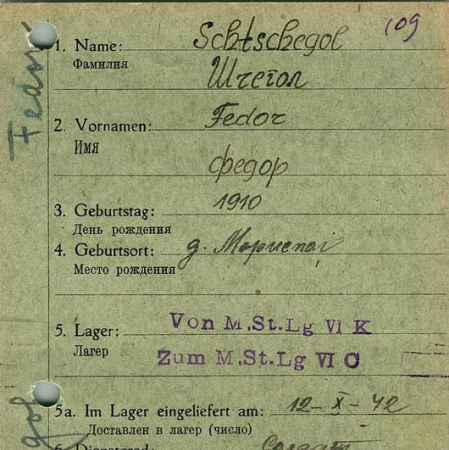 109
1. Name: Schtschegol
Фамилия Штегол
2. Vornamen: Fedor
Имя
федор
3. Geburtstag: 1910
День рождения
4. Geburtsort: д. Мариепол
Место рождения
5. Lager: Von M.St.Lg VI K
Лагер Zum M.St.Lg VI C
5a. Im Lager eingeliefert am: 12-X-42
Доставлен в лагер (число)
6. Dienstgrad: Солдат
Fedor